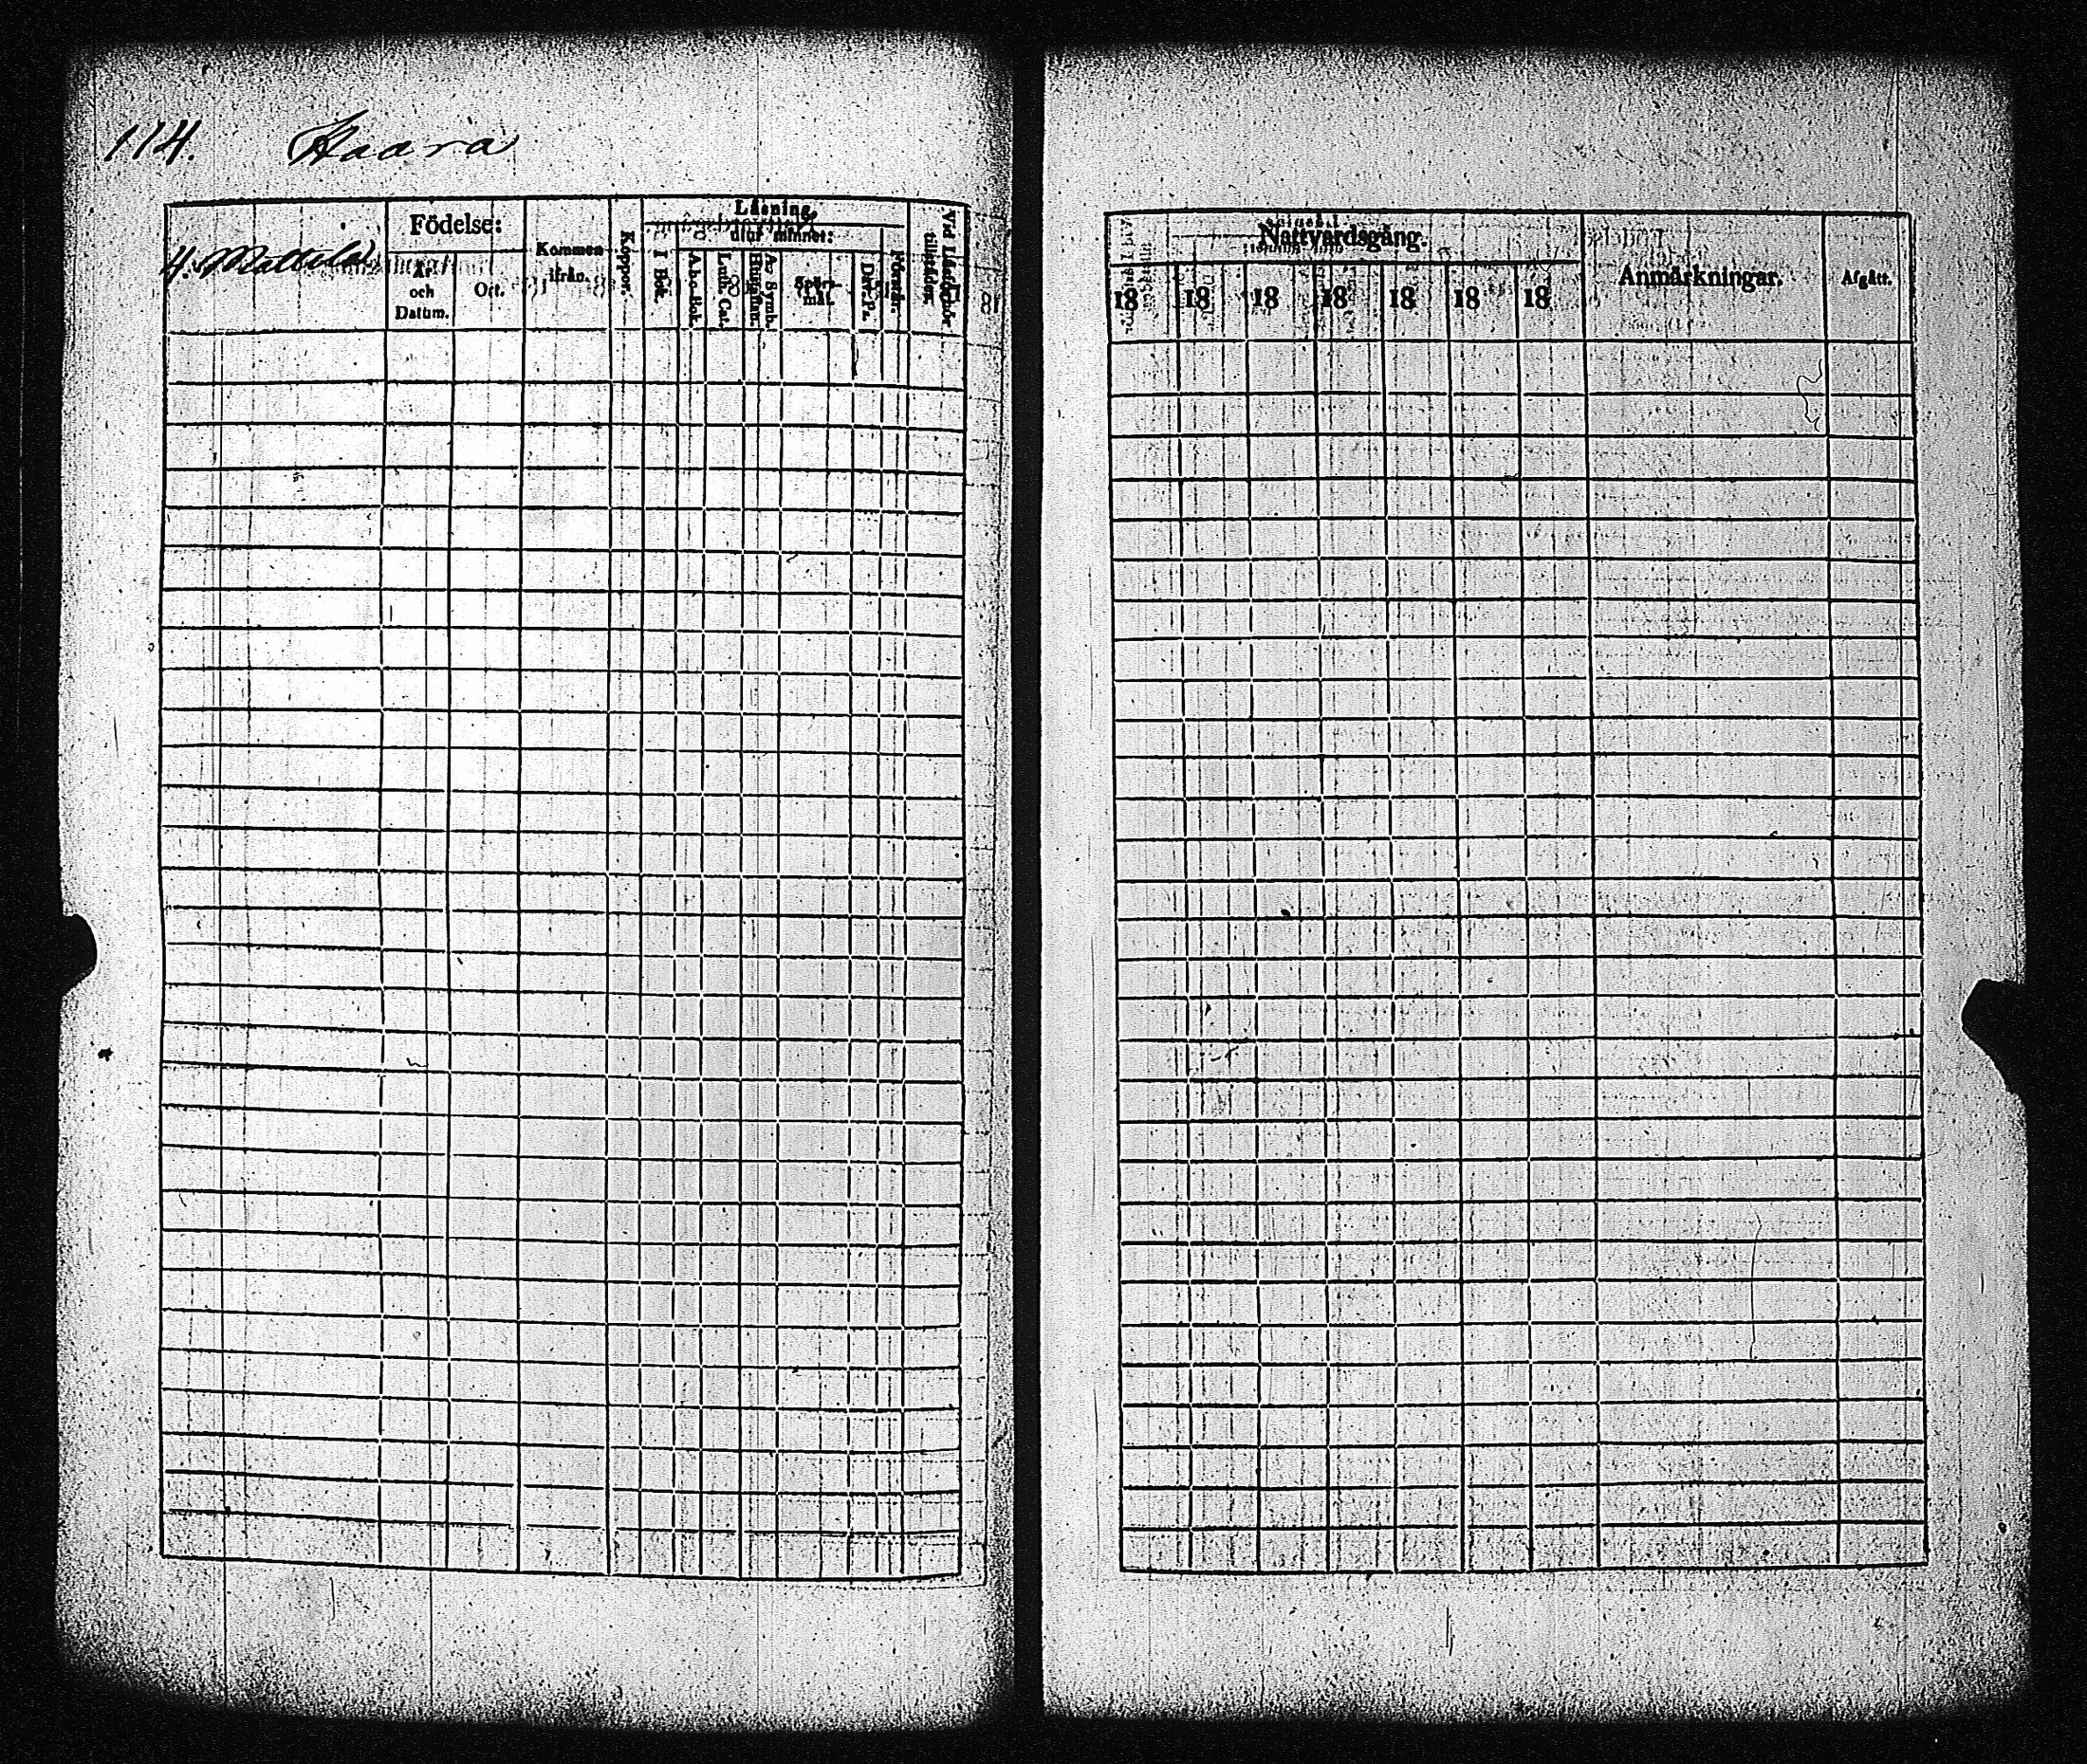 114. Haara
4. Mattila
Födelse:
År och Datum.
Ort.
Kommen ifrån.
Koppor.
Läsning,
I Bok.
utur minnet:
A.b.c. Bok.
Luth. Cat.
A:s Symb. Hustafl.
Spörs- mål.
Dav. Ps.
Förstår.
Vid Läsförhör tillstädes.
18
Nattvardsgång.
18 18 18 18 18 18 18
Anmärkningar.
Afgått.